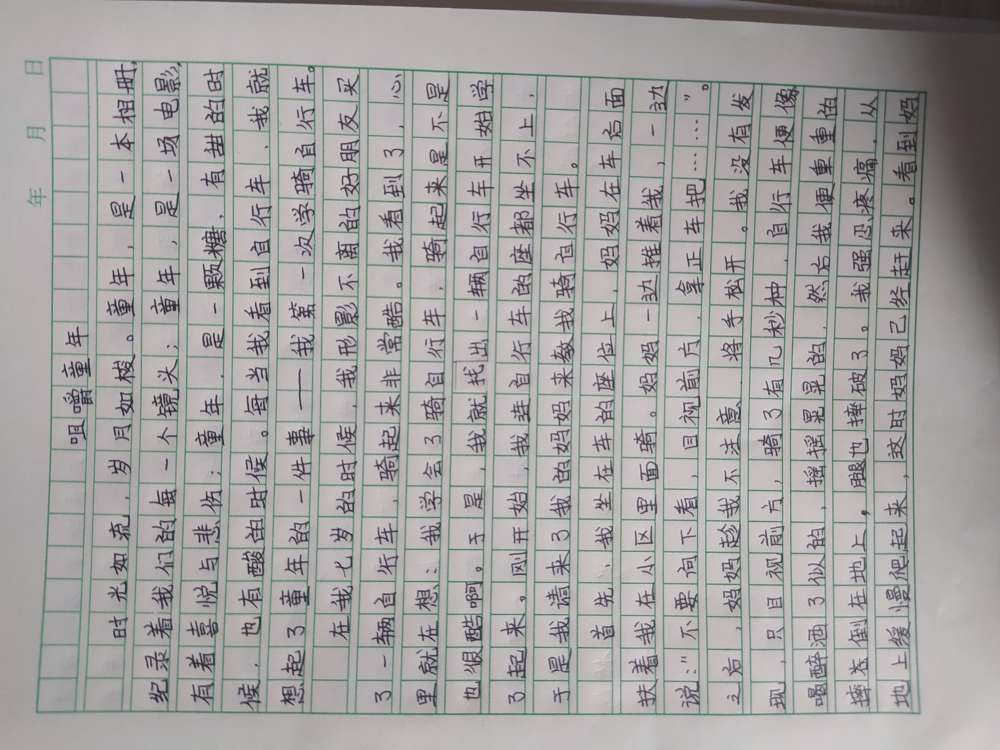 年 月 日
咀嚼童年
时光如流，岁月如梭。童年，是一本相册，
纪录着我们的每一个镜头；童年，是一场电影，
有着喜悦与悲伤；童年，是一颗糖，有甜的时
候，也有酸的时候。每当我看到自行车，我就
想起了童年的一件事——我第一次学骑自行车。
在我七岁的时候，我形影不离的好朋友买
了一辆自行车，骑起来非常酷。我看到了，心
里就在想：我学会了骑自行车，骑起来是不是
也很酷啊。于是，我就找出一辆自行车开始学
了起来。刚开始，我连自行车的座都坐不上，
于是我请来了我的妈妈来教我骑自行车。
首先，我坐在车的座位上，妈妈在车后面
扶着我在小区里面骑。妈妈一边推着我，一边
说："不要向下看，目视前方，拿正车把……"。
之后，妈妈趁我不注意，将手松开。我没有发
现，只目视前方，骑了有几秒种，自行车便像
喝醉酒了似的，摇摇晃晃的，然后我便重重的
摔倒在地上，腿也摔破了。我强忍疼痛，从
地上缓慢爬起来，这时妈妈已经赶来。看到妈